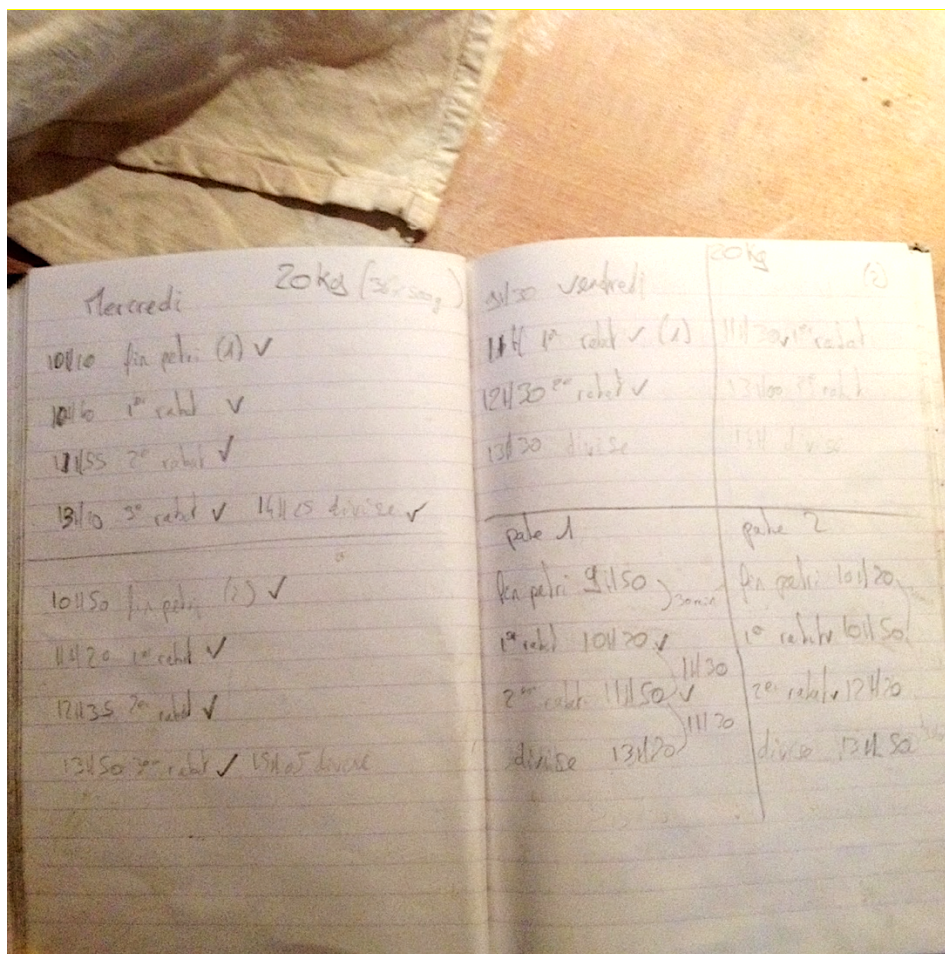 Mercredi 20 Kg
10H10 fin petri (1) ✓
1er rabat ✓
11H55 2e rabat ✓
13H10 3e rabat ✓ 14H25 divise ✓
10H50 fin petri (2) ✓
11H20 1er rabat ✓
12H35 2e rabat ✓
13H50 3e rabat ✓ 15H05 divise
9H30 Vendredi
11H 1er rabat ✓ (1)
12H30 2e rabat ✓
13H30 divise
20 Kg (2)
11H30 ✓ 1er rabat
13H00 2e rabat
13H divise
pate 1
fin petri 9H50
30 min
1er rabat 10H20 ✓
1H30
2em rabat 11H50 ✓
1H20
divise 13H20
pate 2
fin petri 10H20
1er rabat ✓ 10H50
2e rabat ✓ 12H20
divise 13H50